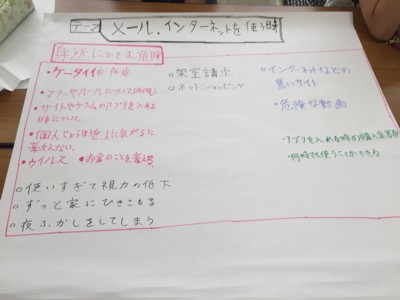 テーマ メール.インターネットを使う時
身ぢかにひそむ危険
・ケータイ依存症
・マナーやルールについて
・サイトやゲームのアプリを入れる
時について。
・個人じょうほうは
教えない。
・ウイルス ・お金のことを考える
○使いすぎて視力の低下
○ずっと家にひきこもる
○夜ふかしをしてしまう
○架空請求
○ネットショッピング
○インターネットなどの
悪いサイト
○危険な動画
・アプリを入れる時の
・何時でも使うことができる